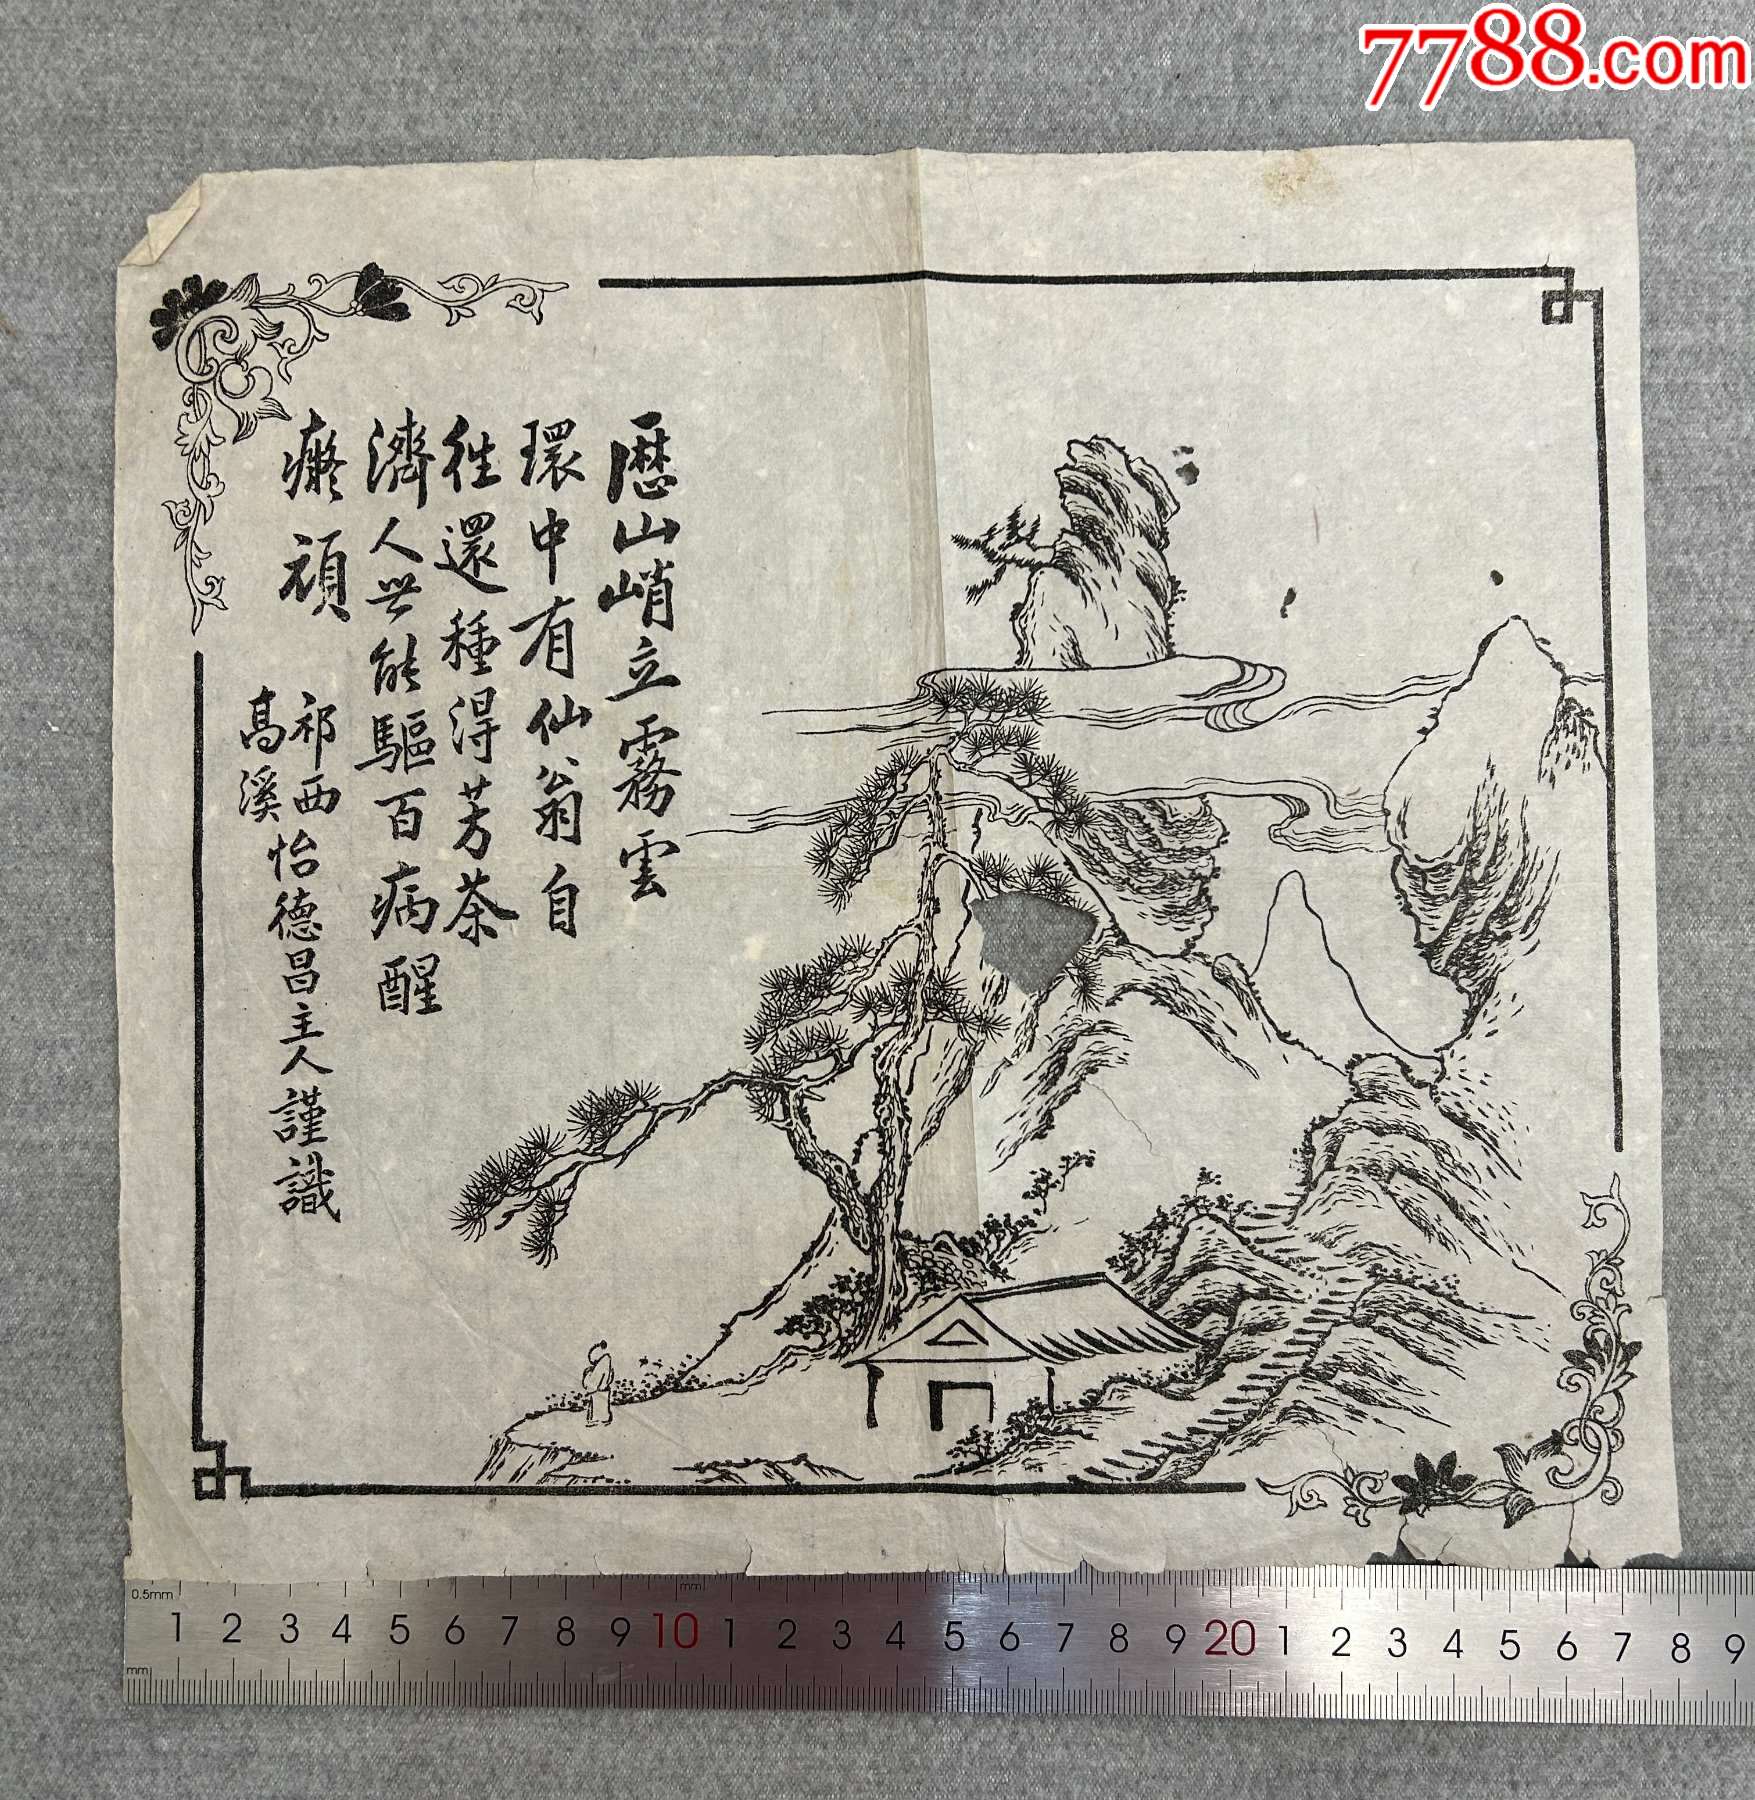 7788.com
歷山峭立霧雲
環中有仙翁自
往還種得芳茶
濟人世能驅百病醒
癡頑
祁西怡德昌主人謹識
高溪
0.5mm
mm
1 2 3 4 5 6 7 8 9 10 1 2 3 4 5 6 7 8 9 20 1 2 3 4 5 6 7 8 9
mm